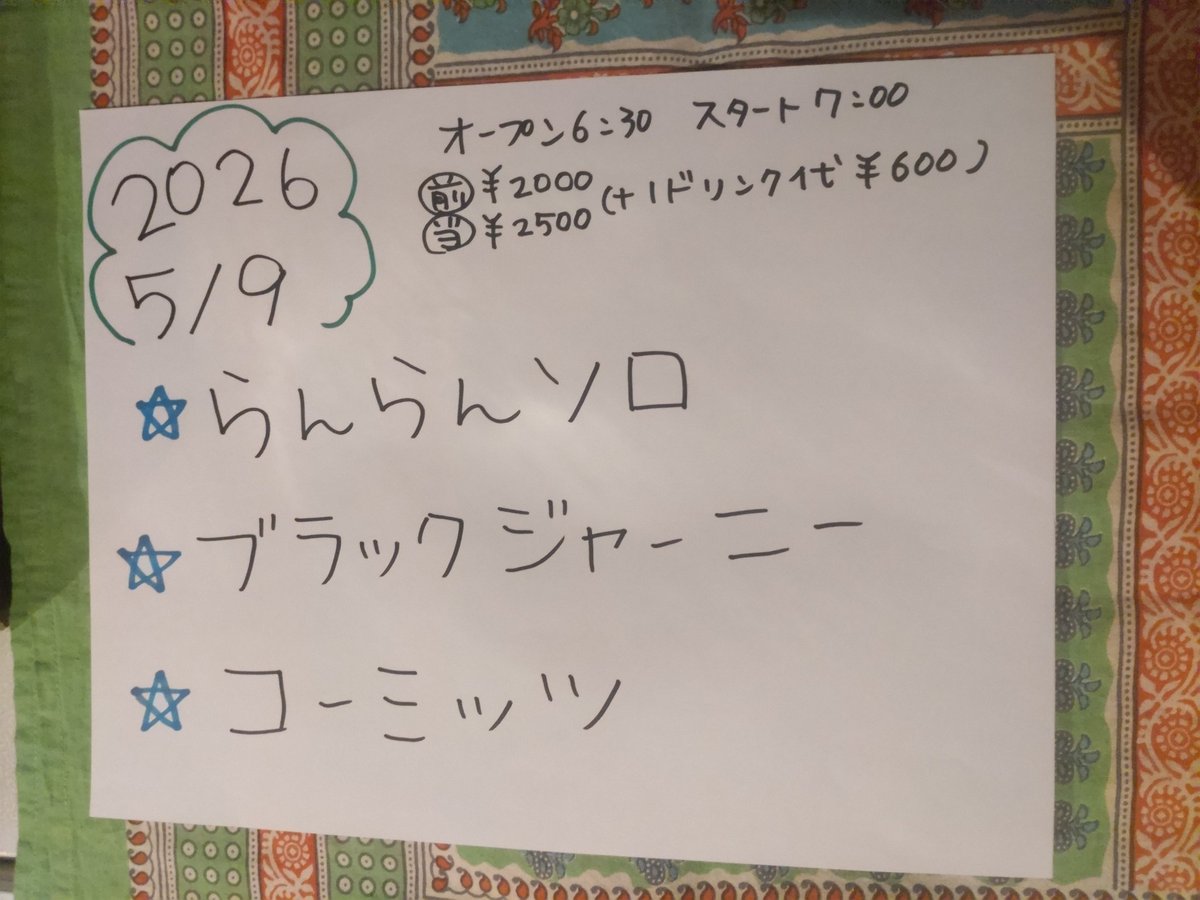 2026
5/9
オープン6:30 スタート7:00
前 ¥2000 (+1ドリンク代¥600)
当 ¥2500
☆らんらんソロ
☆ブラックジャーニー
☆コーミッツ